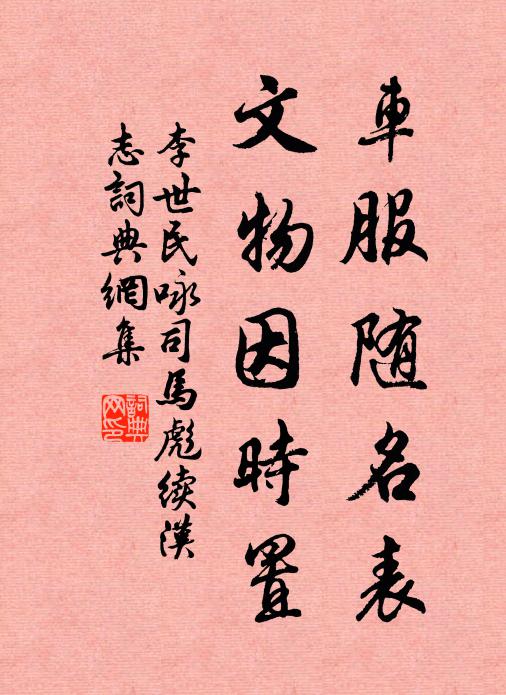 車服随名表
文物因時置
李世民咏司馬彪续漢
志詞典網集
詞典
网印